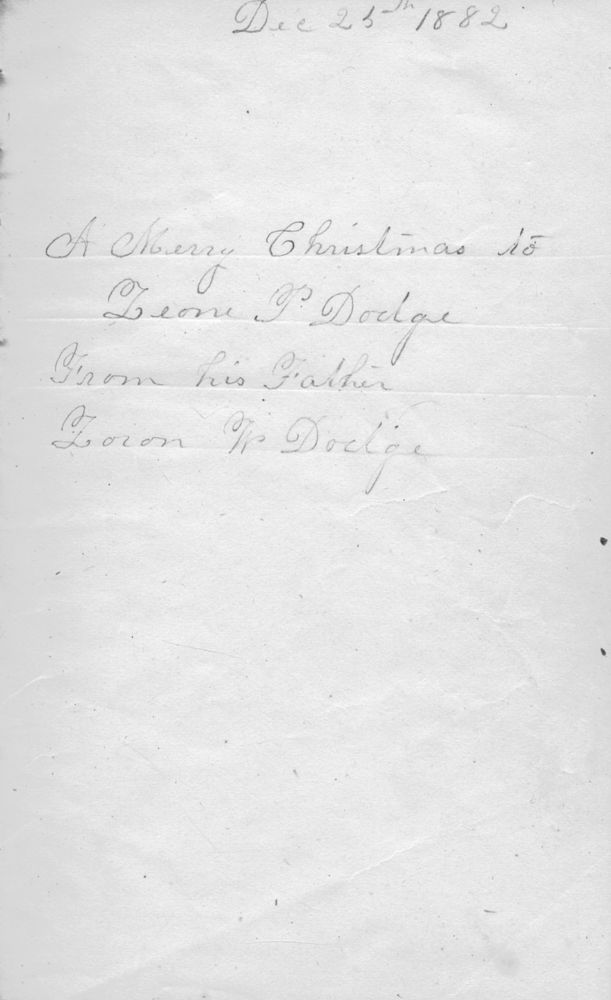 Dec 25th 1882
A Merry Christmas to
Leone P Dodge
From his Father
Loron W Dodge